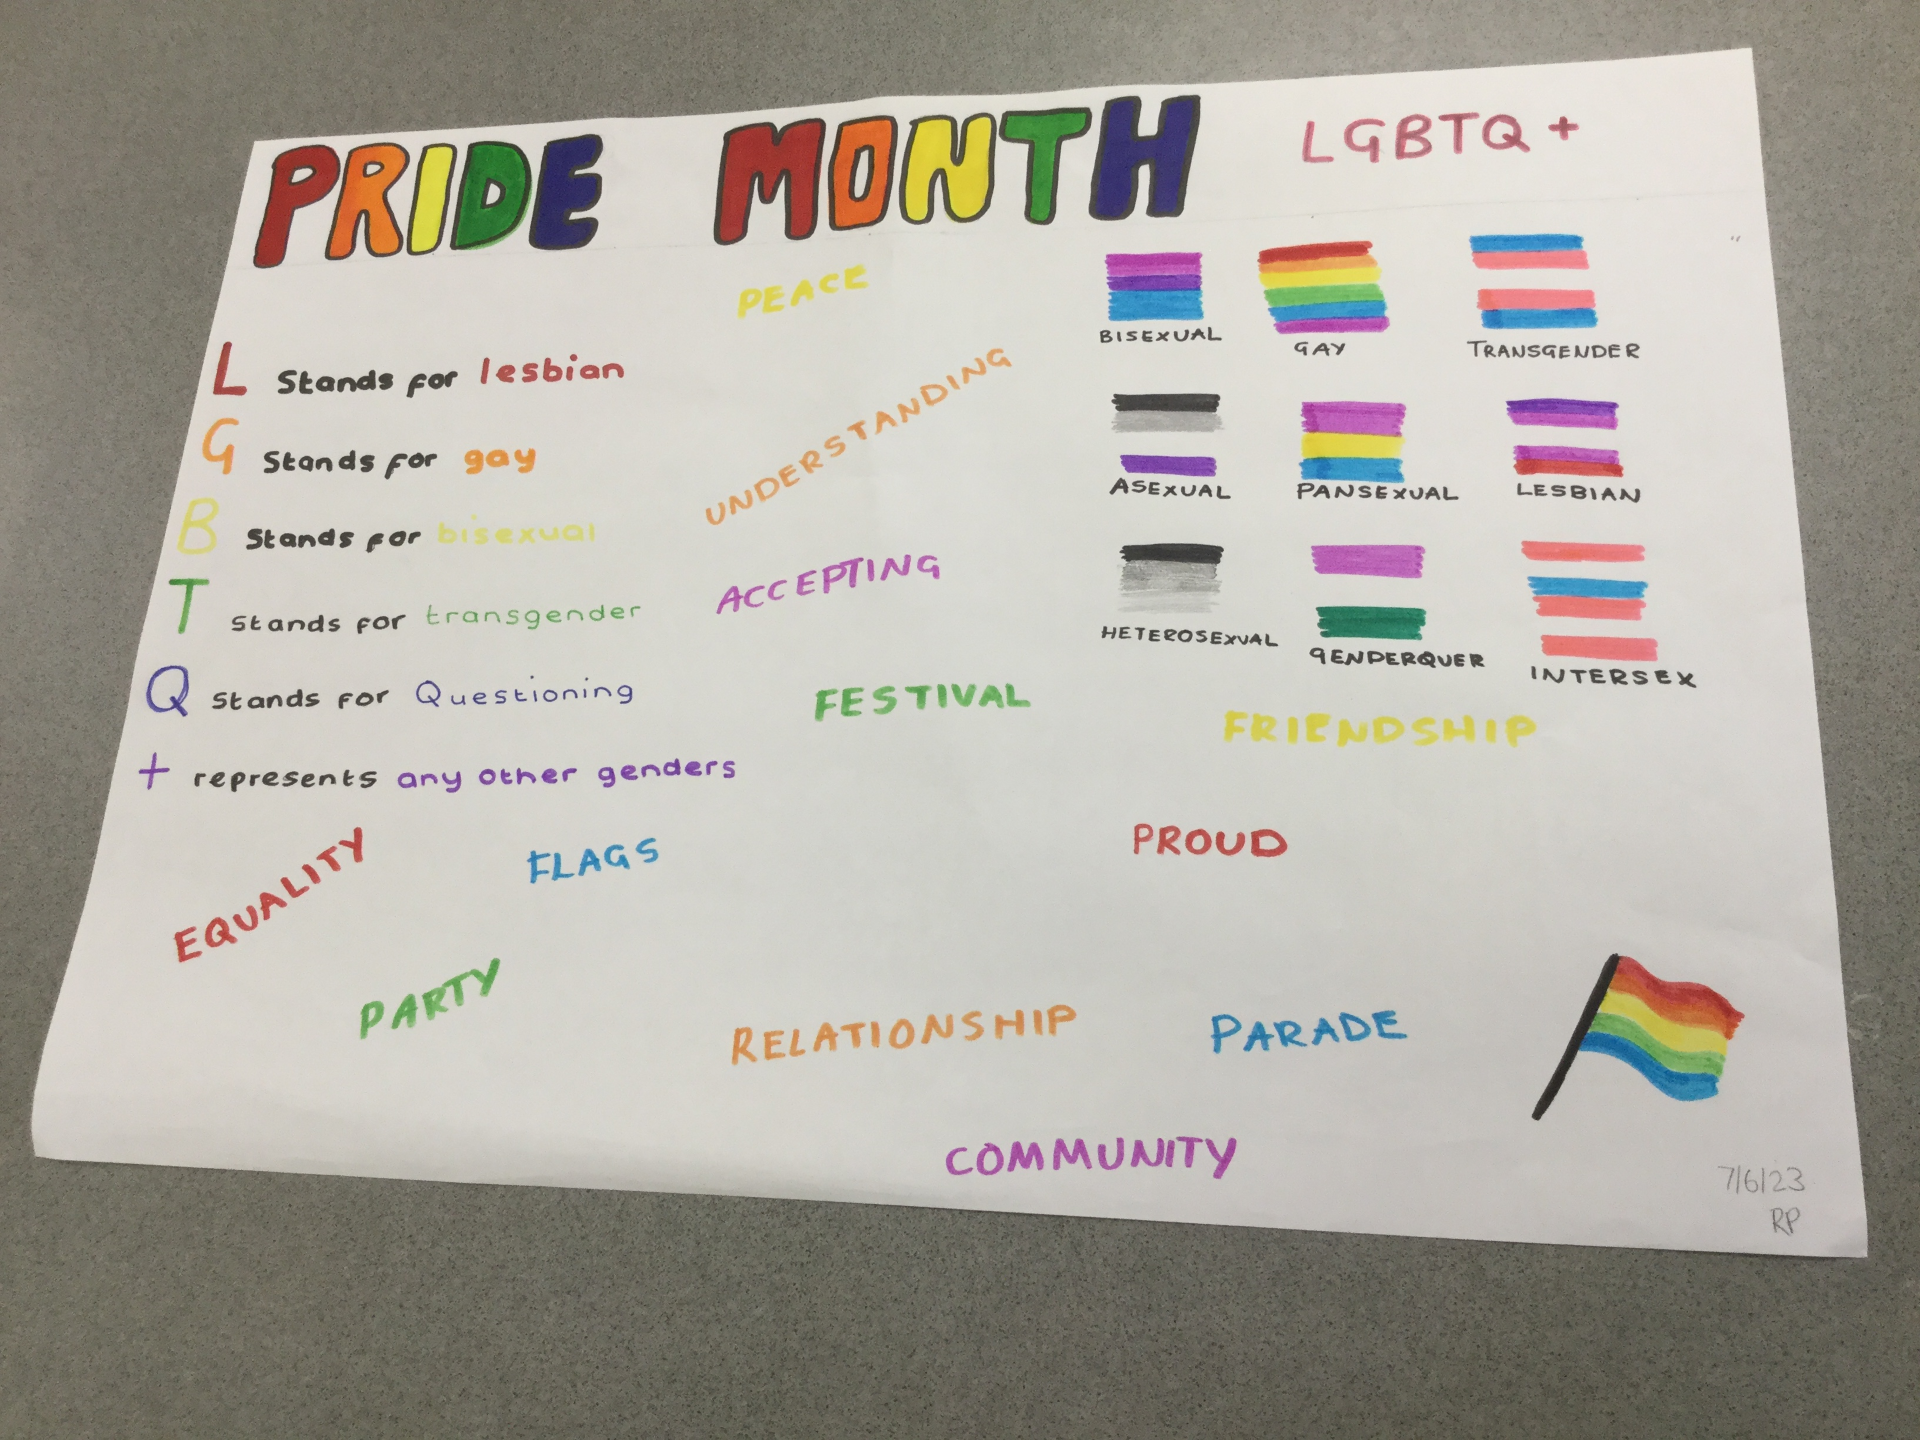 PRIDE MONTH LGBTQ+
PEACE
BISEXUAL GAY TRANSGENDER
L Stands for lesbian
G Stands for gay
B Stands for bisexual
T Stands for transgender
Q Stands for Questioning
+ represents any other genders
UNDERSTANDING
ACCEPTING
ASEXUAL PANSEXUAL LESBIAN
HETEROSEXUAL GENDERQUER INTERSEX
FESTIVAL
FRIENDSHIP
EQUALITY
FLAGS
PROUD
PARTY
RELATIONSHIP
PARADE
COMMUNITY
7/6/23
RP